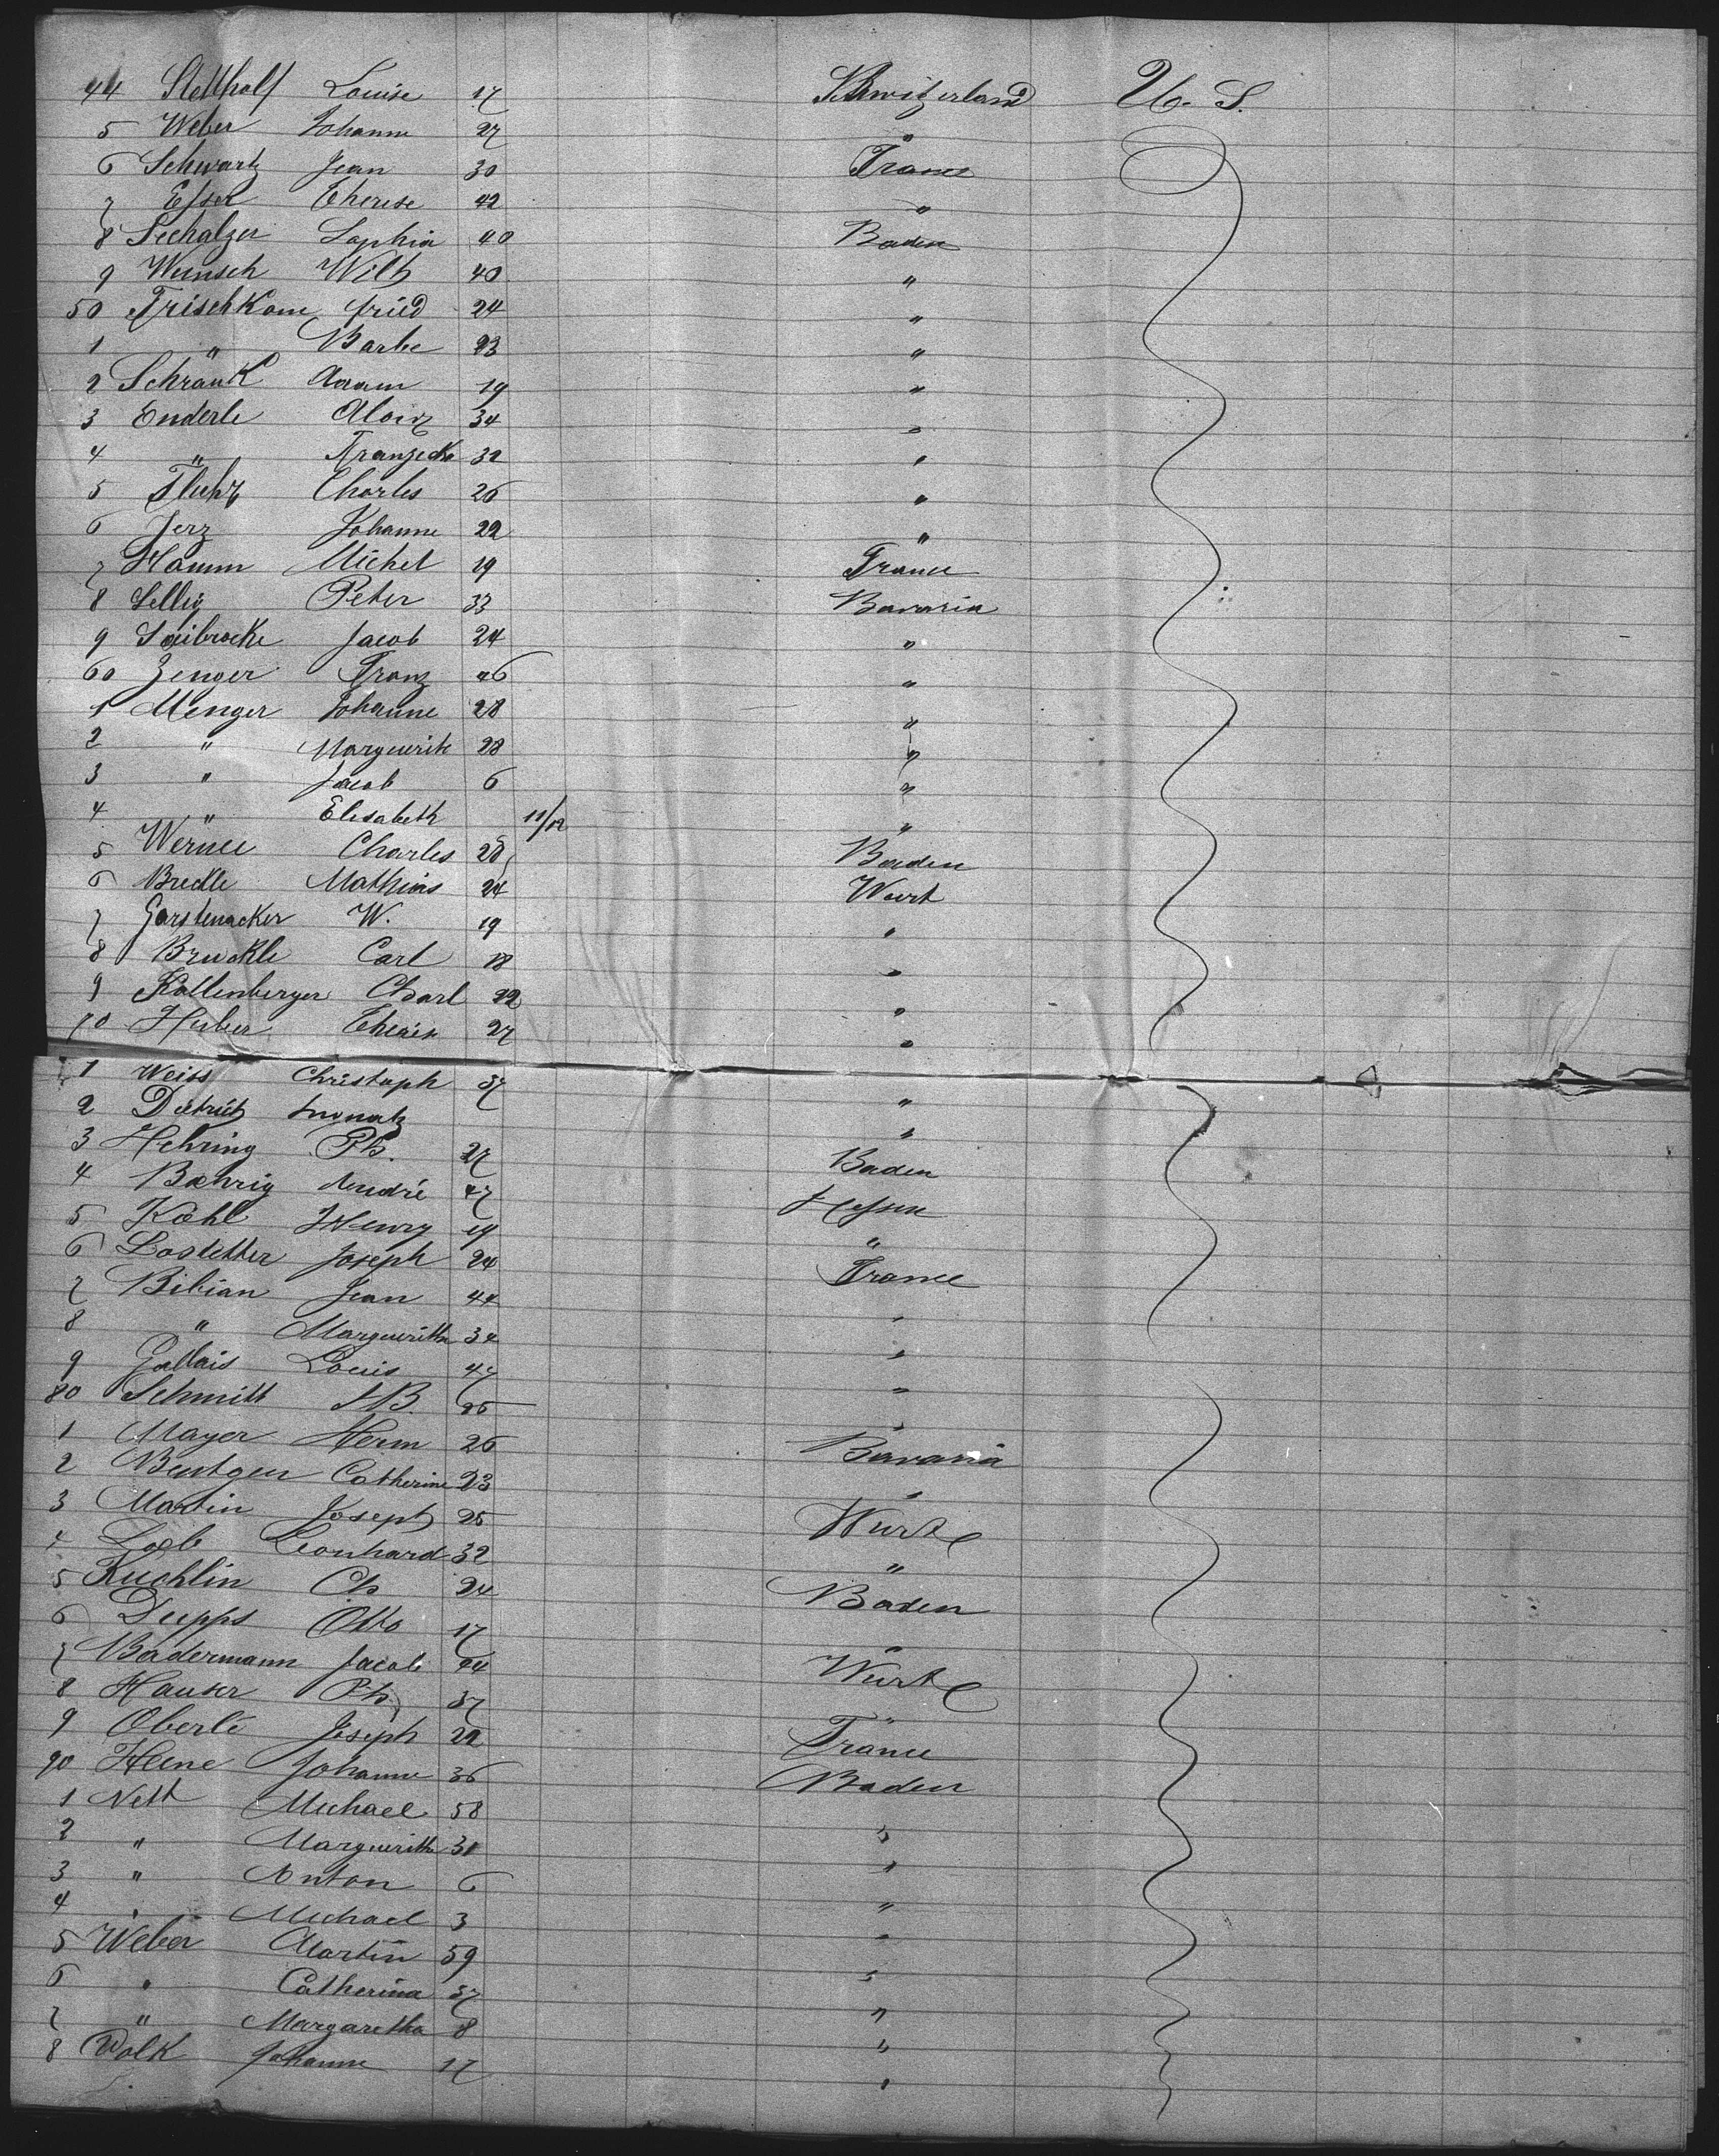 44 Stetthalf Louise 17 Schwitzerland U. S.
5 Weber Johanne 27 "
6 Schwartz Jean 30 France
7 Esser Therese 42 "
8 Seehalzer Sophia 40 Baden
9 Wunsch Wilh 40 "
50 Frischkom fried 24 "
1 " Barbe 23 "
2 Schrank Adam 19 "
3 Enderle Aloiz 34 "
4 " Franzecka 32 "
5 Fluhr Charles 26 "
6 Jerz Johanne 22 "
7 Hamm Michel 19 France
8 Sellig Peter 33 Bavaria
9 Saibrocke Jacob 24 "
60 Zenger Franz 26 "
1 Menger Johanne 28 "
2 " Marguerite 28 "
3 " Jacob 6 "
4 " Elisabeth 11/12 "
5 Werner Charles 28 Baden
6 Bredle Mathias 24 Wurt
7 Garstenacker W. 19 "
8 Bruckle Carl 18 "
9 Kollenberger Charl 22 "
70 Huber Therese 27 "
1 Weiss Christoph 37 "
2 Dietrich "
3 Hehring Ph. 27 Baden
4 Bœhrig André 47 Hessen
5 Kohl Henry 19 "
6 Lostetter Joseph 24 France
7 Bibian Jean 44 "
8 " Marguerithe 34 "
9 Gallais Louis 47 "
80 Schmitt J B. 25 "
1 Mayer Herm 26 Bavaria
2 Bentgen Catherine 23 "
3 Martin Joseph 25 Wurt
4 Loeb Leonhard 32 "
5 Kuchlin Ch 24 Baden
6 Deepps Otto 17 "
7 Badermann Jacob 24 Wurt
8 Hauser Ph. 37 "
9 Oberlé Joseph 22 France
90 Hene Johanne 36 Baden
1 Nett Michael 58 "
2 " Marguerithe 30 "
3 " Anton 6 "
4 " Michael 3 "
5 Weber Martin 59 "
6 " Catherina 57 "
7 " Margaretha 8 "
8 Volk Johanne 17 "